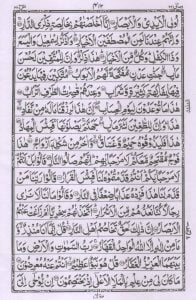 اُولِی الْاَیْدِیْ وَالْاَبْصَارِ اِنَّاۤ اَخْلَصْنٰهُمْ بِخَالِصَةٍ ذِكْرَى الدَّارِ
وَاِنَّهُمْ عِنْدَنَا لَمِنَ الْمُصْطَفَیْنَ الْاَخْیَارِ وَاذْكُرْ اِسْمٰعِیْلَ وَالْیَسَعَ
وَذَا الْكِفْلِ وَكُلٌّ مِّنَ الْاَخْیَارِ هٰذَا ذِكْرٌ وَاِنَّ لِلْمُتَّقِیْنَ لَحُسْنَ
مَاٰبٍ جَنّٰتِ عَدْنٍ مُّفَتَّحَةً لَّهُمُ الْاَبْوَابُ مُتَّكِـِٕیْنَ فِیْهَا یَدْعُوْنَ
فِیْهَا بِفَاكِهَةٍ كَثِیْرَةٍ وَّشَرَابٍ وَعِنْدَهُمْ قٰصِرٰتُ الطَّرْفِ اَتْرَابٌ
هٰذَا مَا تُوْعَدُوْنَ لِیَوْمِ الْحِسَابِ اِنَّ هٰذَا لَرِزْقُنَا مَا لَهٗ مِنْ نَّفَادٍ
هٰذَا وَاِنَّ لِلطّٰغِیْنَ لَشَرَّ مَاٰبٍ جَهَنَّمَ یَصْلَوْنَهَا فَبِئْسَ الْمِهَادُ
هٰذَا فَلْیَذُوْقُوْهُ حَمِیْمٌ وَّغَسَّاقٌ وَّاٰخَرُ مِنْ شَكْلِهٖۤ اَزْوَاجٌ هٰذَا
فَوْجٌ مُّقْتَحِمٌ مَّعَكُمْ لَا مَرْحَبًا بِهِمْ اِنَّهُمْ صَالُوا النَّارِ قَالُوْا بَلْ
اَنْتُمْ لَا مَرْحَبًا بِكُمْ اَنْتُمْ قَدَّمْتُمُوْهُ لَنَا فَبِئْسَ الْقَرَارُ قَالُوْا رَبَّنَا مَنْ
قَدَّمَ لَنَا هٰذَا فَزِدْهُ عَذَابًا ضِعْفًا فِی النَّارِ وَقَالُوْا مَا لَنَا لَا نَرٰى
رِجَالًا كُنَّا نَعُدُّهُمْ مِّنَ الْاَشْرَارِ اَتَّخَذْنٰهُمْ سِخْرِیًّا اَمْ زَاغَتْ عَنْهُمُ
الْاَبْصَارُ اِنَّ ذٰلِكَ لَحَقٌّ تَخَاصُمُ اَهْلِ النَّارِ قُلْ اِنَّمَاۤ اَنَا مُنْذِرٌ وَّ
مَا مِنْ اِلٰهٍ اِلَّا اللّٰهُ الْوَاحِدُ الْقَهَّارُ رَبُّ السَّمٰوٰتِ وَالْاَرْضِ وَمَا
بَیْنَهُمَا الْعَزِیْزُ الْغَفَّارُ قُلْ هُوَ نَبَؤٌا عَظِیْمٌ اَنْتُمْ عَنْهُ مُعْرِضُوْنَ
مَا كَانَ لِیَ مِنْ عِلْمٍۭ بِالْمَلَاِ الْاَعْلٰۤى اِذْ یَخْتَصِمُوْنَ اِنْ یُّوْحٰۤى